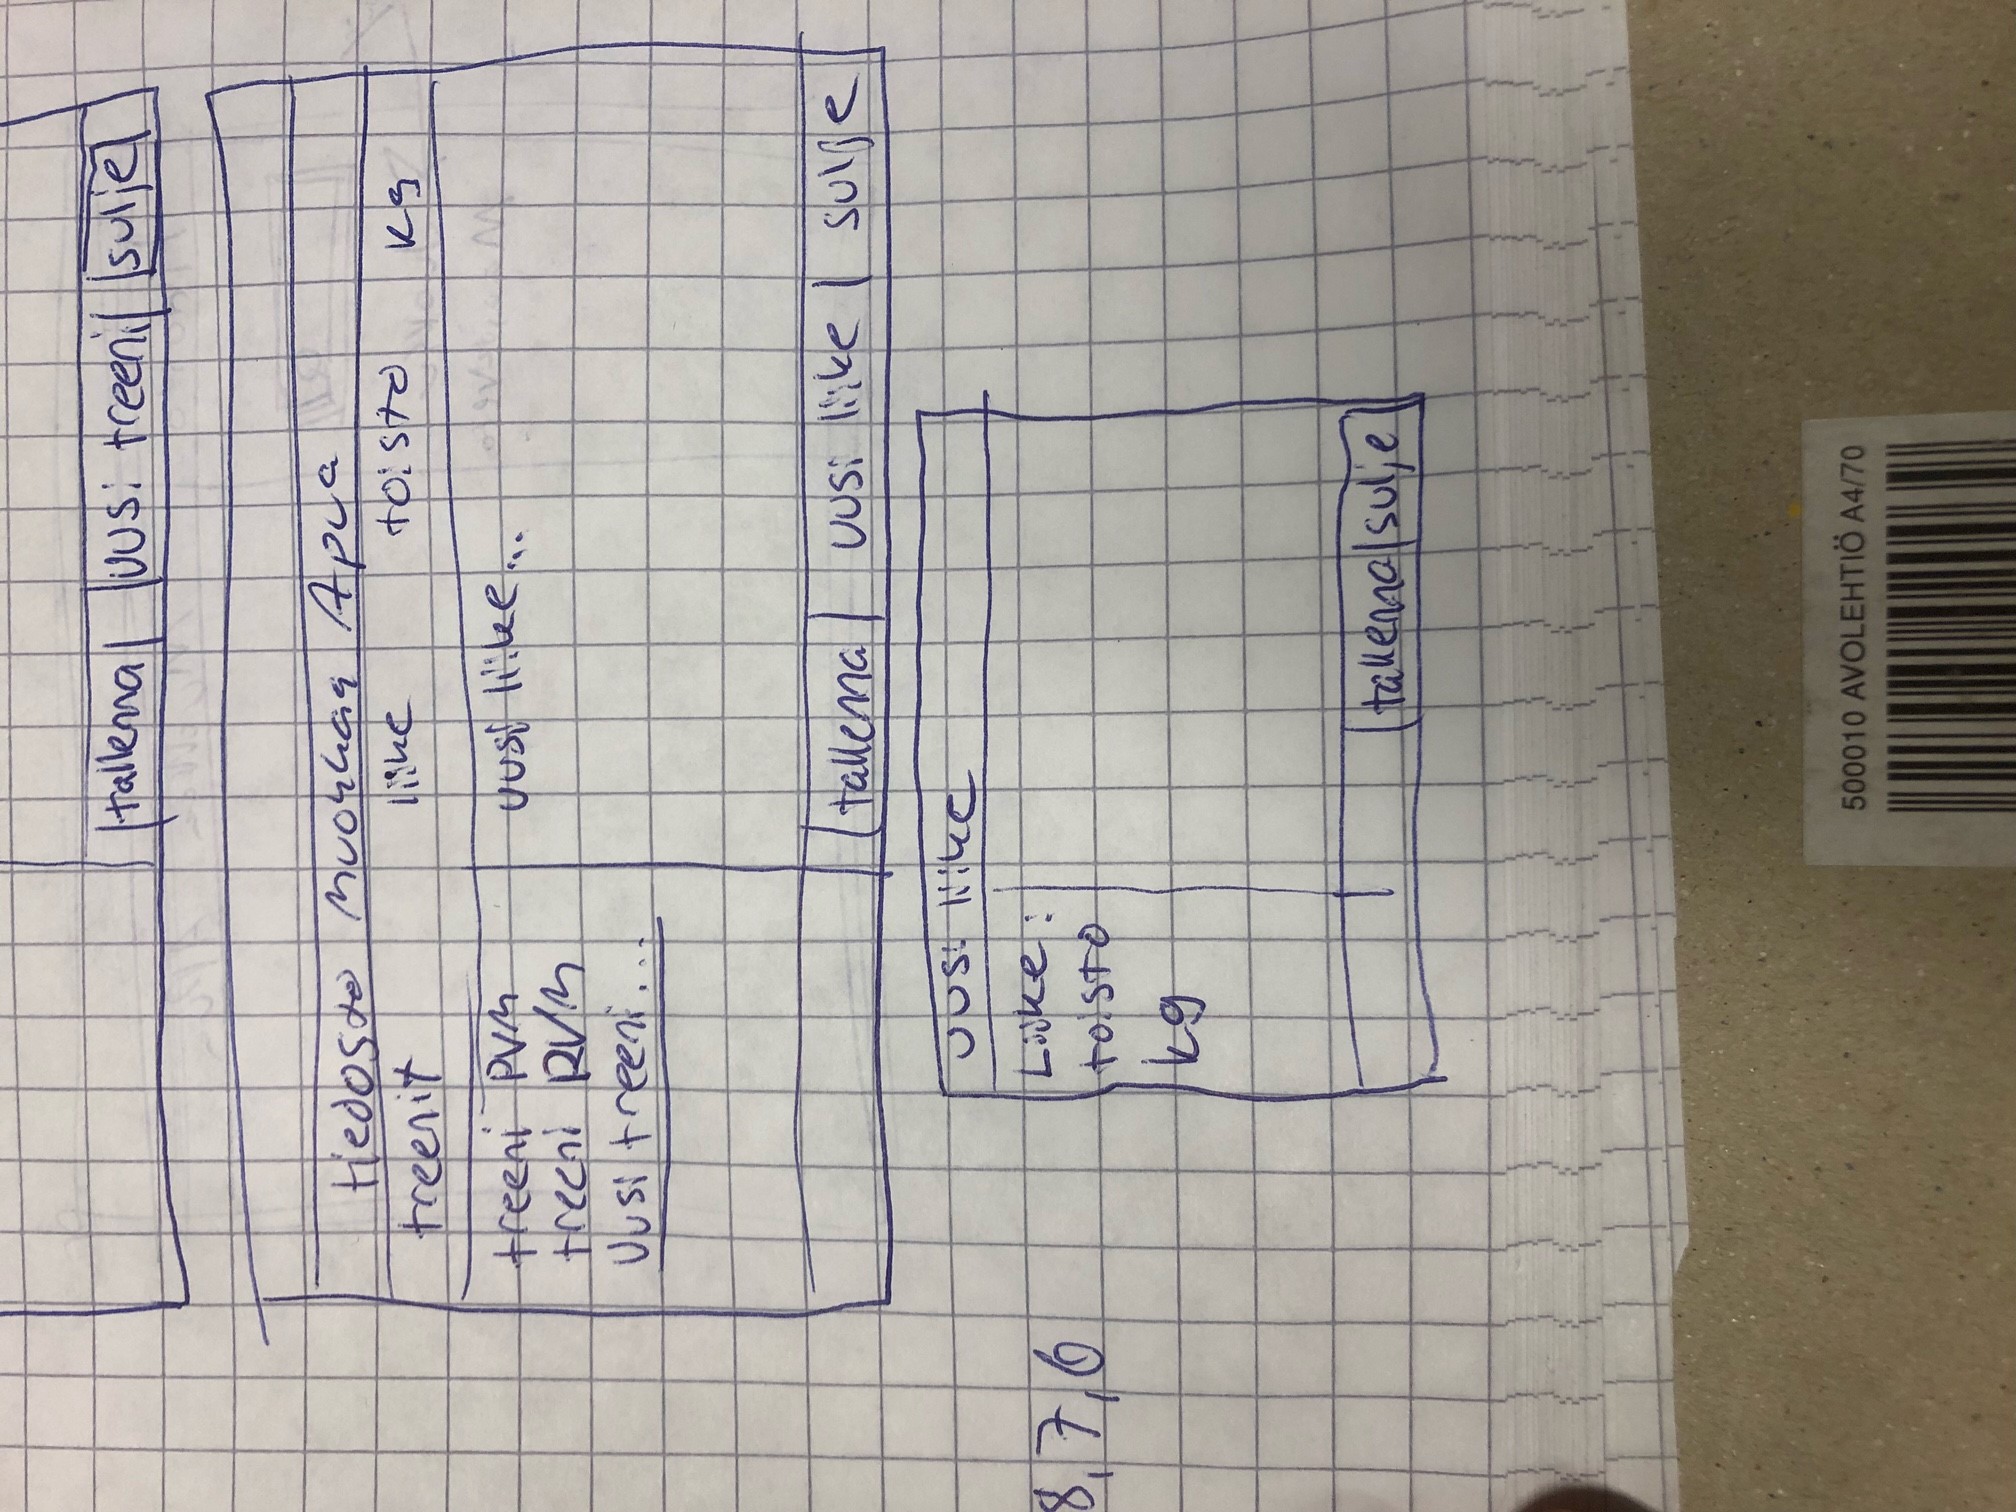 tallenna uusi treeni sulje
tiedosto muokkaa Apua
treenit liike toisto kg
treeni PVM uusi liike...
treeni PVM
Uusi treeni...
tallenna uusi liike sulje
uusi liike
Liike:
toisto
kg
tallenna sulje
8,7,6
500010 AVOLEHTIÖ A4/70